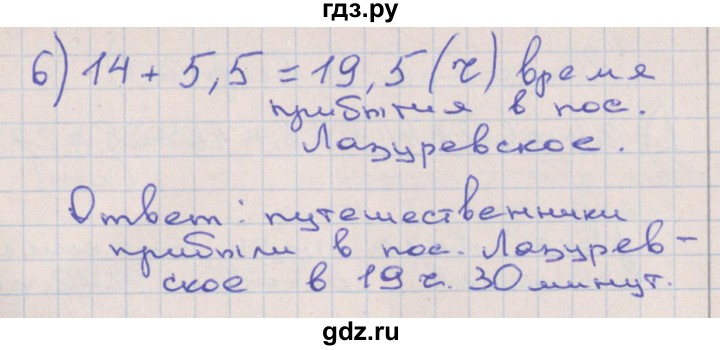 гдз.ру
6) 14 + 5,5 = 19,5 (ч) время
прибытия в пос.
Лазуревское.
Ответ: путешественники
прибыли в пос. Лазурев-
ское в 19 ч. 30 минут.
gdz.ru